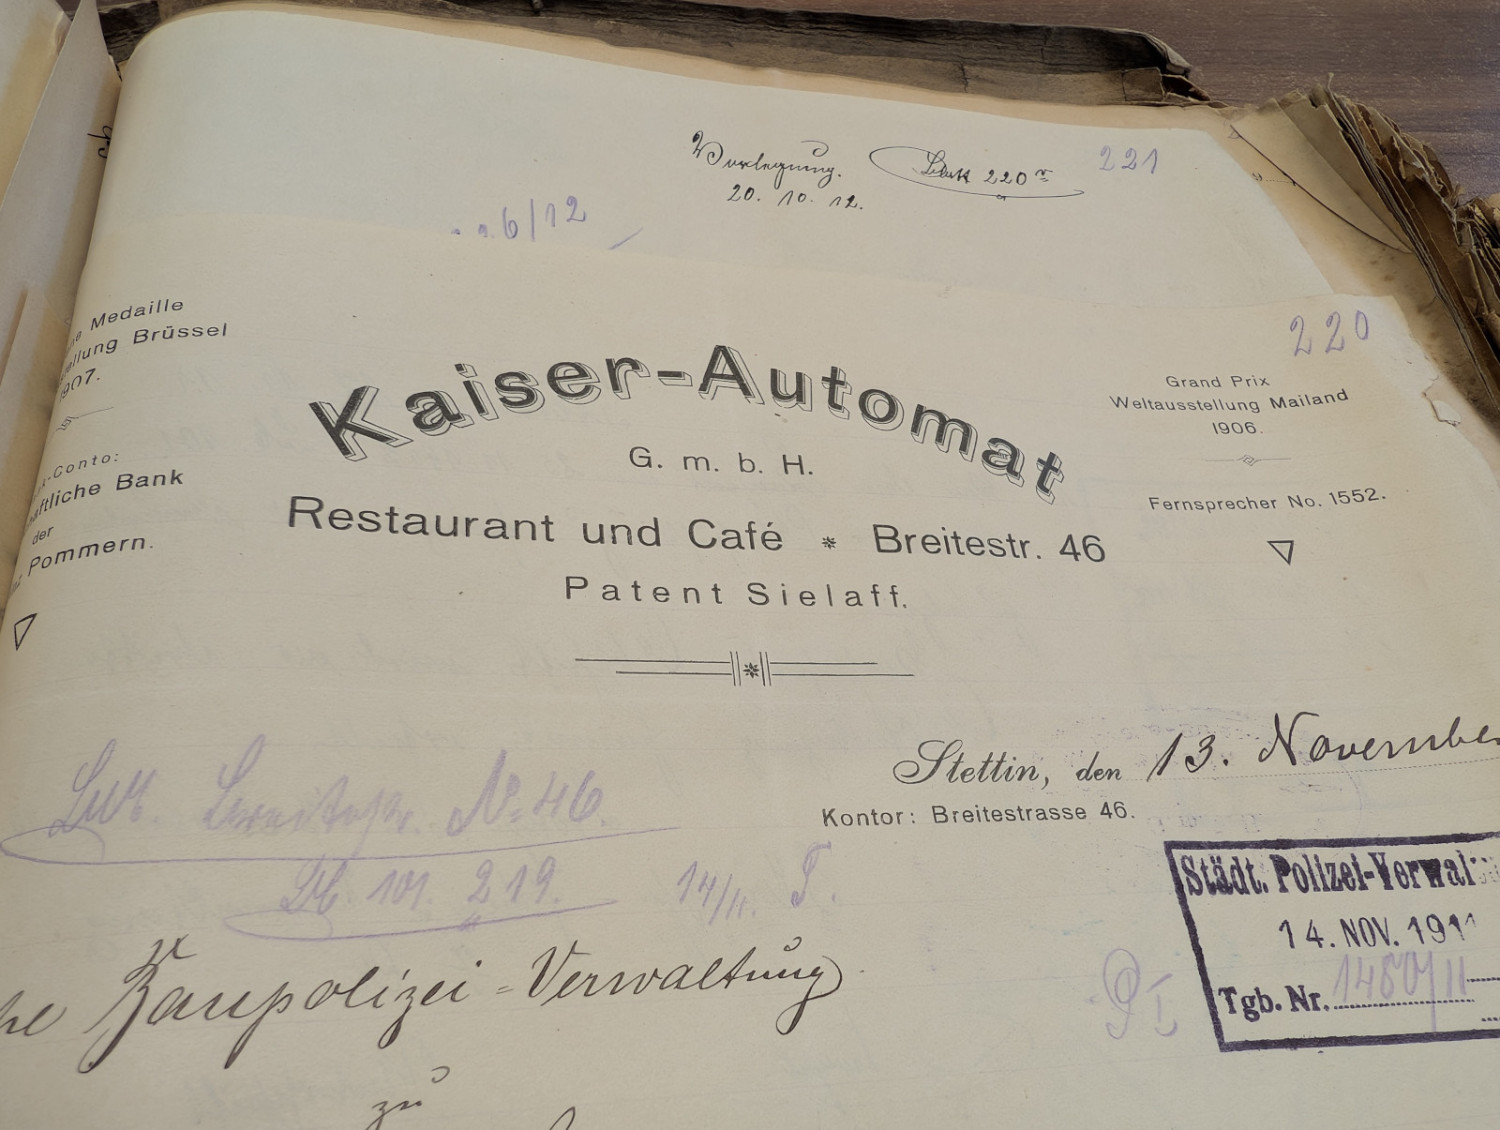 Vorlegung.
20. 10. 12.
Blatt 220
221
6/12
220
Medaille
Brüssel
1907.
Conto:
Bank
der
Pommern.
Kaiser-Automat
G. m. b. H.
Restaurant und Café * Breitestr. 46
Patent Sielaff.
Grand Prix
Weltausstellung Mailand
1906.
Fernsprecher No. 1552.
Stettin, den 13. November
Kontor: Breitestrasse 46.
No. 46.
101. 219. 14/11.
Städt. Polizei-Verwal
14. NOV. 1911
Tgb. Nr.
Baupolizei-Verwaltung
zu